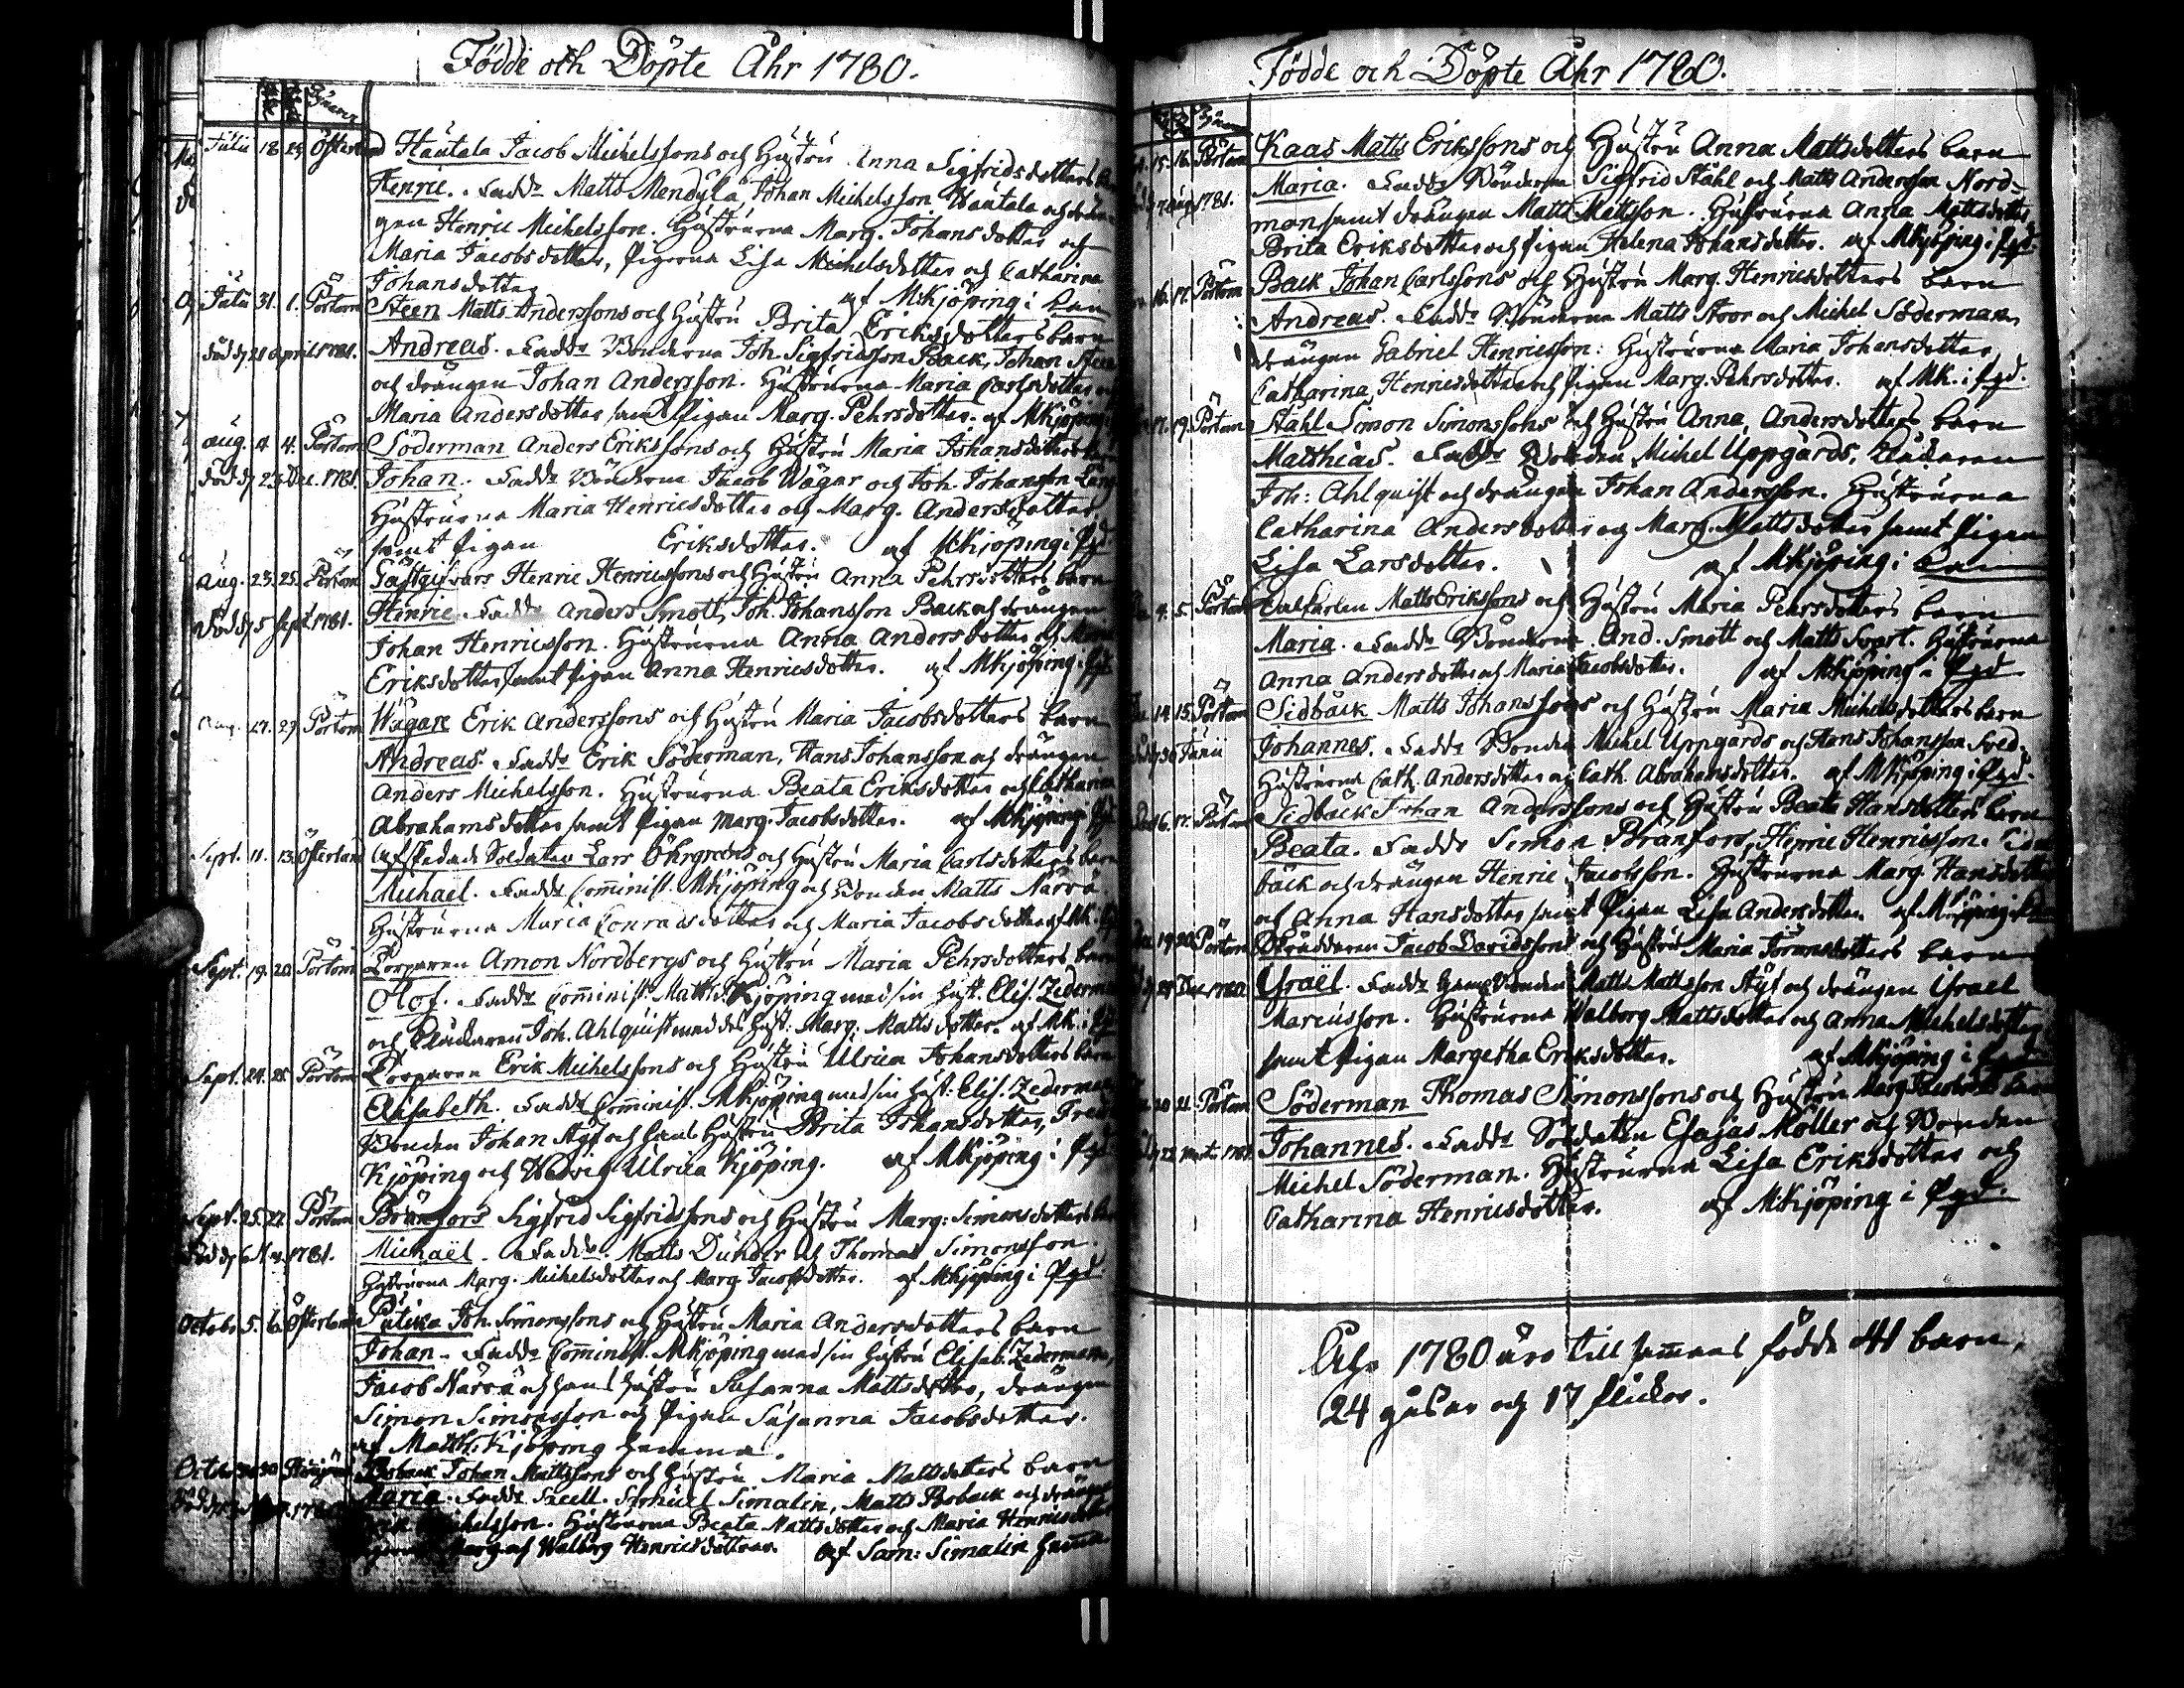 Födde och Döpte Åhr 1780.
Julii 18. 19. Österland Hautala Jacob Michelssons och Hustru Anna Sigfridsdotters
Henric. Fadd: Matts Mendula, Johan Michelsson Hautala och drän
gen Henric Michelsson. Hustrurna Marg. Johansdotter och
Maria Jacobsdotter, Pigorna Lisa Michelsdotter och Catharina
Johansdotter af MKjöping i
Julii 31. 1. Pörtom Steen Matts Anderssons och Hustru Brita Eriksdotters barn
död d 21 April 1781. Andreas. Fadd: Bönderna Joh. Sigfridsson Back, Johan Steen
och drängen Johan Andersson. Hustrurna Maria Carlsdotter
Maria Andersdotter samt Pigan Marg. Pehrsdotter. af MKjöping
Aug. 4 4. Pörtom Söderman Anders Erikssons och Hustru Maria Johansdotters
död d 23 Dec. 1781. Johan. Fadd: Bönderna Jacob Wägar och Joh. Johansson Lång
Hustrurna Maria Henricsdotter och Marg. Andersdotter
samt Pigan Eriksdotter. af MKjöping i Pgd
Aug. 23. 25. Pörtom Gästgifvars Henric Henricssons och Hustru Anna Pehrsdotters barn
död d 5 Sept 1781. Henric. Fadd: Anders Smått, Joh. Johansson Back och drängen
Johan Henricsson. Hustrurna Anna Andersdotter och Maria
Eriksdotter samt Pigan Anna Henricsdotter. af MKjöping i Pgd
Aug. 27. 29. Pörtom Wägare Erik Anderssons och Hustru Maria Jacobsdotters barn
Andreas. Fadd: Erik Söderman, Hans Johansson och drängen
Anders Michelsson. Hustrurna Beata Eriksdotter och Catharina
Abrahamsdotter samt Pigan Marg. Jacobsdotter. af MKjöping i Pgd
Sept. 11. 13. Österland Afskedade Soldaten Lars Öhrgrens och Hustru Maria Carlsdotters barn
Michael. Fadd: Com̄inist. MKjöping och Bonden Matts Närvä
Hustrurna Maria Conradsdotter och Maria Jacobsdotter af MK.
Sept. 19. 20. Pörtom Torparen Amon Nordbergs och Hustru Maria Pehrsdotters barn
Olof. Fadd: Com̄inist. Matth. Kjöping med sin Hust. Elis. Zederman
och Klackaren Joh. Ahlquist med des Hust: Marg. Mattsdotter. af MK. i
Sept. 24. 25. Pörtom Torparen Erik Michelssons och Hustru Ulrica Johansdotters barn
Elisabeth. Fadd: Com̄inist. MKjöping med sin Hust. Elis. Zederman
Bonden Johan Ägf och hans Hustru Brita Johansdotter, Fred.
Kjöping och Hedvig Ulrica Kjöping. af MKjöping i Pgd
Sept. 25. 27. Pörtom Brånfors Sigfrid Sigfridssons och Hustru Marg: Simonsdotters
död d 6 1781. Michaël. Fadd: Matts Dunder och Thomas Simonsson.
Hustrurna Marg. Michelsdotter och Marg. Jacobsdotter. af MKjöping i Pgd
Octobr 5. 6. Österland Putika Joh. Simonssons och Hustru Maria Andersdotters barn
Johan. Fadd: Com̄inist. MKjöping med sin Hustru Elisab. Zederman,
Jacob Närvä och hans Hustru Susanna Mattsdotter, drängen
Simon Simonsson och Pigan Susanna Jacobsdotter.
af Matth. Kjöping hemma.
Octob. 30 Boback Johan Mattssons och Hustru Maria Mattsdotters barn
Maria. Fadd: Sacell. Samuel Simalin, Matts Boback och drängen
Michelsson. Hustrurna Beata Mattsdotter och Maria Henricsdotter
Marg. och Walborg Henricsdöttrar. af Sam: Simalin hemma
Födde och Döpte Åhr 1780.
15. 16. Pörtom Kaas Matts Erikssons och Hustru Anna Mattsdotters barn
7 Aug 1781. Maria. Fadd: Bönderna Sigfrid Ståhl och Matts Andersson Nord-
man samt drängen Matts Mattsson. Hustrurna Anna Mattsdotter,
Brita Eriksdotter och Pigan Helena Johansdotter. af MKjöping i Pgd.
16. 17. Pörtom Back Johan Carlssons och Hustru Marg. Henricsdotters barn
Andreas. Fadd: Bönderna Matts Stoor och Michel Söderman,
drängen Gabriel Henricsson: Hustrurna Maria Johansdotter
Catharina Henricsdotter och Pigan Marg. Pehrsdotter. af MK. i Pgd.
17. 19. Pörtom Ståhl Simon Simonssons och Hustru Anna Andersdotters barn
Matthias. Fadd: Bonden Michel Uppgårds, Klackaren
Joh: Ahlquist och drängen Johan Andersson. Hustrurna
Catharina Andersdotter och Marg. Mattsdotter samt Pigan
Lisa Larsdotter. af MKjöping i
4. 5. Pörtom Dalkarlen Matts Erikssons och Hustru Maria Pehrsdotters barn
Maria. Fadd: Bönderna And. Smått och Matts Svart. Hustrurna
Anna Andersdotter och Maria Jacobsdotter. af MKjöping i Pgd
14 15. Pörtom Sidbäck Matts Johanssons och Hustru Maria Michelsdotters barn
30 Junii Johannes. Fadd: Bonden Michel Uppgårds och Hans Johansson Sved.
Hustrurna Cath. Andersdotter och Cath. Abrahamsdotter. af MKjöping i Pgd.
16. 17. Pörtom Sidbäck Johan Anderssons och Hustru Beata Hansdotters barn
Beata. Fadd: Simon Brånfors, Henric Henricsson Sid
bäck och drängen Henric Jacobsson. Hustrurna Marg. Hansdotter
och Anna Hansdotter samt Pigan Lisa Andersdotter. af MKjöping i
19 20. Pörtom Skräddaren Jacob Davidssons och Hustru Maria Jöransdotters barn
28 Dec 1780. Israël. Fadd: Hemsbonden Matts Mattsson Ägf och drängen Israel
Marcusson. Hustrurna Walborg Mattsdotter och Anna Michelsdotter
samt Pigan Margetha Eriksdotter. af MKjöping i Pgd
20 21. Pörtom Söderman Thomas Simonssons och Hustru Marg. Jacobsd: barn
22 1781. Johannes. Fadd: Soldaten Esajas Möller och Bonden
Michel Söderman. Hustrurna Lisa Eriksdotter och
Catharina Henricsdotter. af MKjöping i Pgd.
Åhr 1780 äro till samans födde 41 barn,
24 gåsar och 17 flickor.